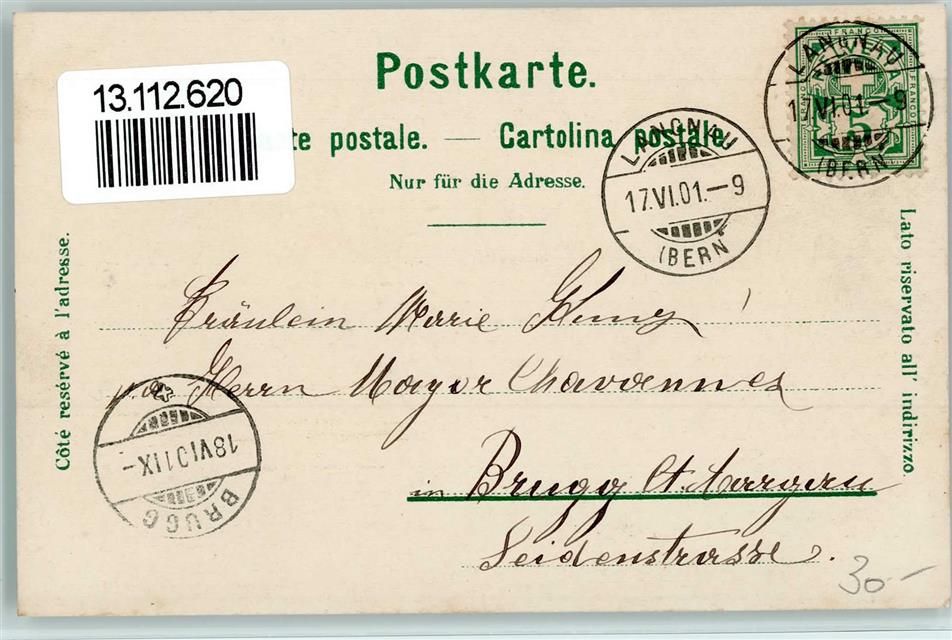 13.112.620
Postkarte.
te postale. — Cartolina postale.
Nur für die Adresse.
Côté resérvé à l'adresse.
Lato riservato all' indirizzo.
FRANCO
LANGNAU
17.VI.01.–9
(BERN)
LANGNAU
17.VI.01.–9
(BERN)
Fräulein Marie
Herrn Mayor Chavannes
in Brugg Ct. Aargau
Seidenstrasse.
BRUGG
18.VI.01.IX-
30.-